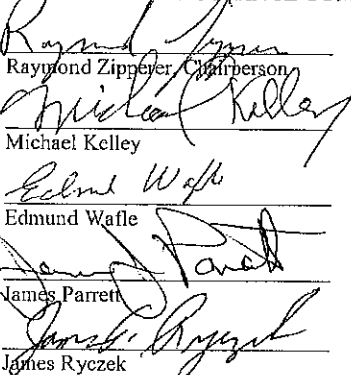 Raymond Zipperer, Chairperson
Michael Kelley
Michael Kelley
Edmund Wafle
Edmund Wafle
James J Parrett
James Parrett
James Ryczek
James Ryczek